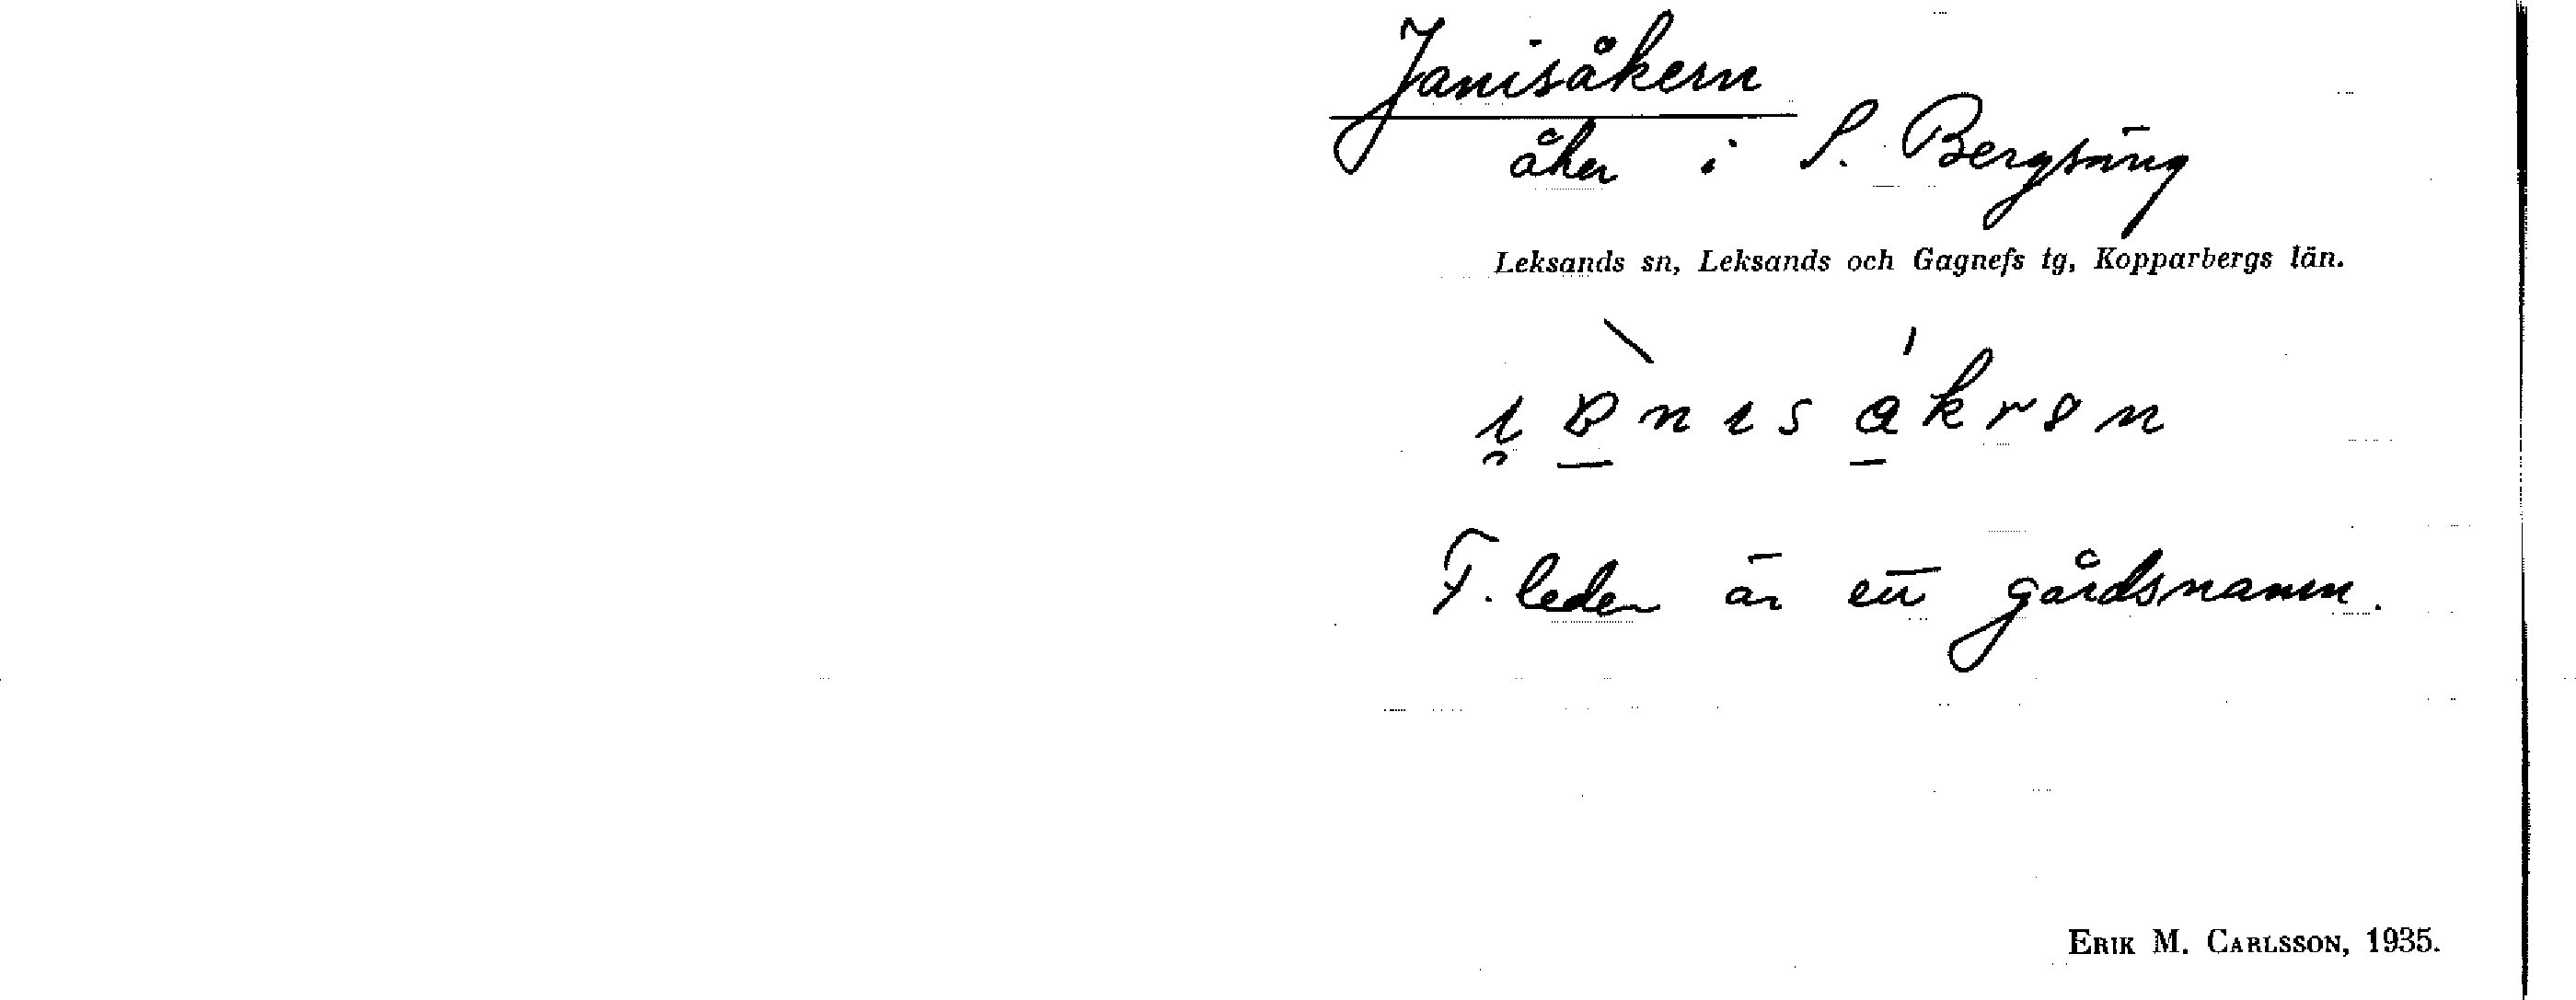 Janisåkern
åker i S. Bergsäng
Leksands sn, Leksands och Gagnefs tg, Kopparbergs län.
F. leden är ett gårdsnamn.
ERIK M. CARLSSON, 1935.